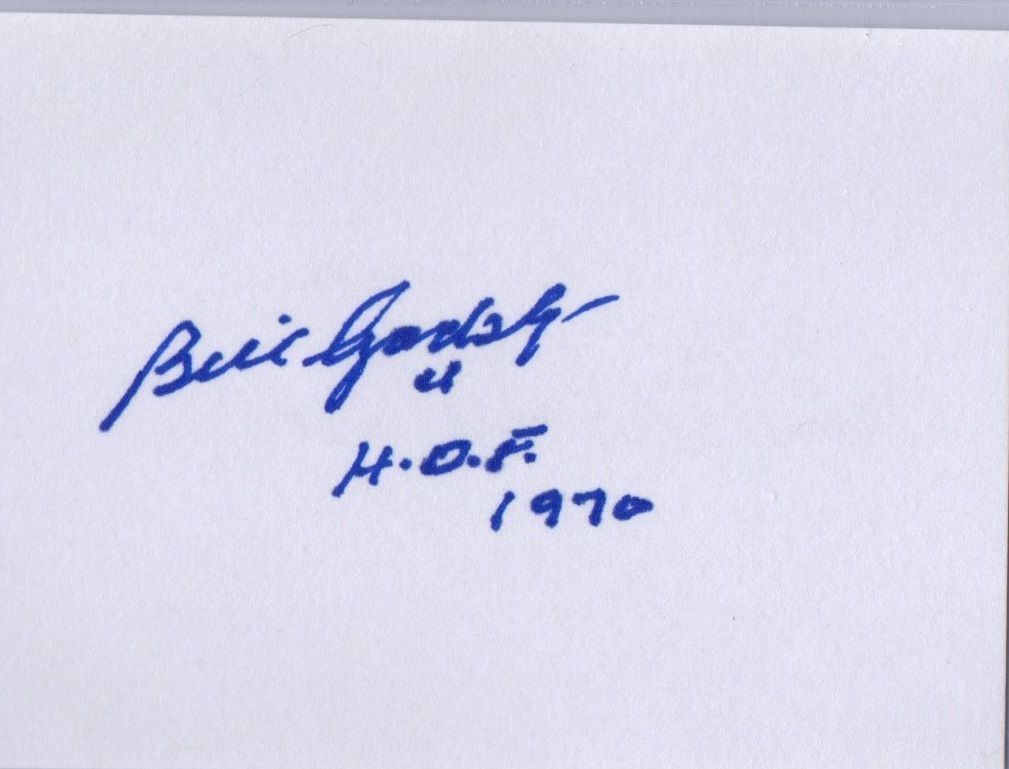 Bill Gadsby
4
H.O.F.
1970